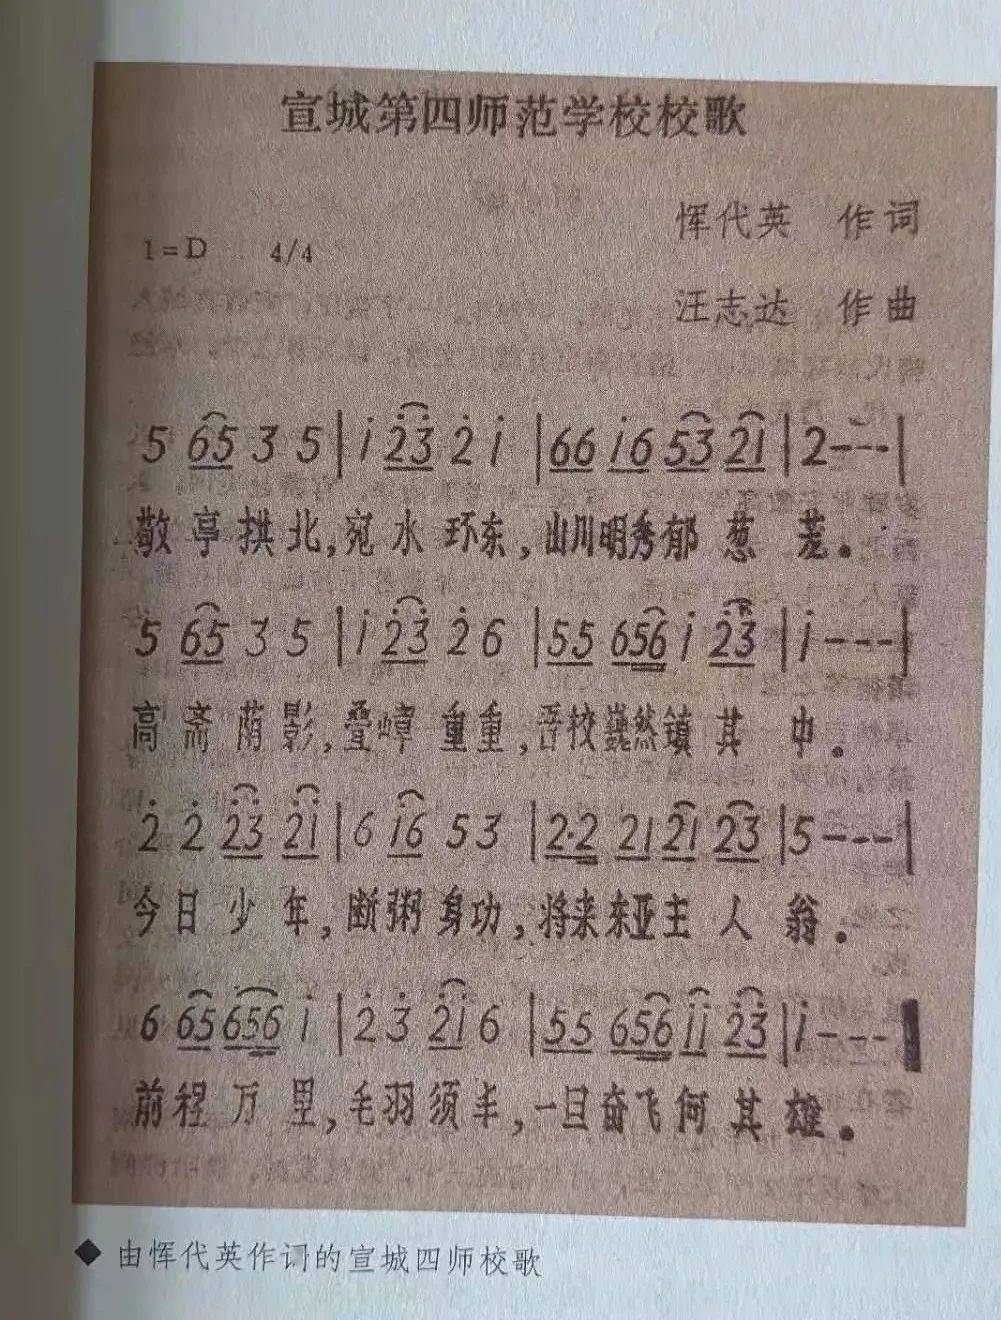 宣城第四师范学校校歌
恽代英 作词
1=D 4/4
汪志达 作曲
5 65 3 5 | i̇ 2̇3̇ 2̇ i̇ | 66 i̇6 53 21 | 2--- |
敬亭拱北,宛水环东,山川明秀郁葱茏。
5 65 3 5 | i̇ 2̇3̇ 2̇ 6 | 55 656 i̇ 2̇3̇ | i̇--- |
高斋荫影,叠嶂重重,吾校巍然镇其中。
2̇ 2̇ 2̇3̇ 2̇i̇ | 6 i̇6 5 3 | 2·2 21 21 23 | 5--- |
今日少年,断粥身功,将来东亚主人翁。
6 65 656 i̇ | 2̇ 3̇ 2̇i̇ 6 | 55 656 i̇i̇ 2̇3̇ | i̇--- |
前程万里,毛羽须丰,一旦奋飞何其雄。
◆ 由恽代英作词的宣城四师校歌